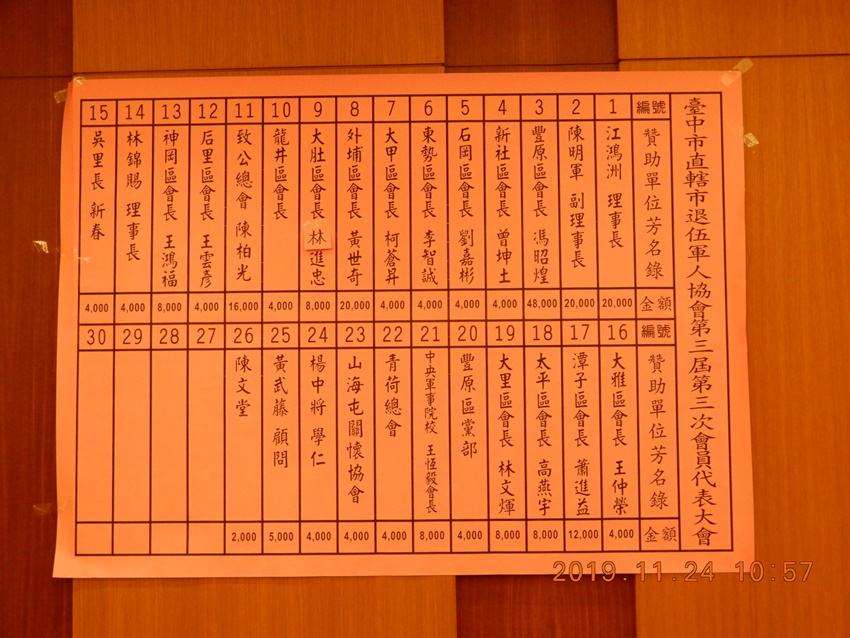 臺中市直轄市退伍軍人協會第三屆第三次會員代表大會
編號 贊助單位芳名錄 金額
1 江鴻洲 理事長 20,000
2 陳明軍 副理事長 20,000
3 豐原區會長 馮昭煌 48,000
4 新社區會長 曾坤土 4,000
5 石岡區會長 劉嘉彬 4,000
6 東勢區會長 李智誠 4,000
7 大甲區會長 柯蒼昇 4,000
8 外埔區會長 黃世奇 20,000
9 大肚區會長 林進忠 8,000
10 龍井區會長 4,000
11 致公總會 陳柏光 16,000
12 后里區會長 王雲彥 4,000
13 神岡區會長 王鴻福 8,000
14 林錦賜 理事長 4,000
15 吳里長 新春 4,000
編號 贊助單位芳名錄 金額
16 大雅區會長 王仲榮 4,000
17 潭子區會長 蕭進益 12,000
18 太平區會長 高燕宇 8,000
19 大里區會長 林文煇 8,000
20 豐原區黨部 4,000
21 中央軍事院校 王恆毅會長 8,000
22 青荷總會 4,000
23 山海屯關懷協會 4,000
24 楊中將 學仁 4,000
25 黃武藤 顧問 5,000
26 陳文堂 2,000
27
28
29
30
2019.11.24 10:57